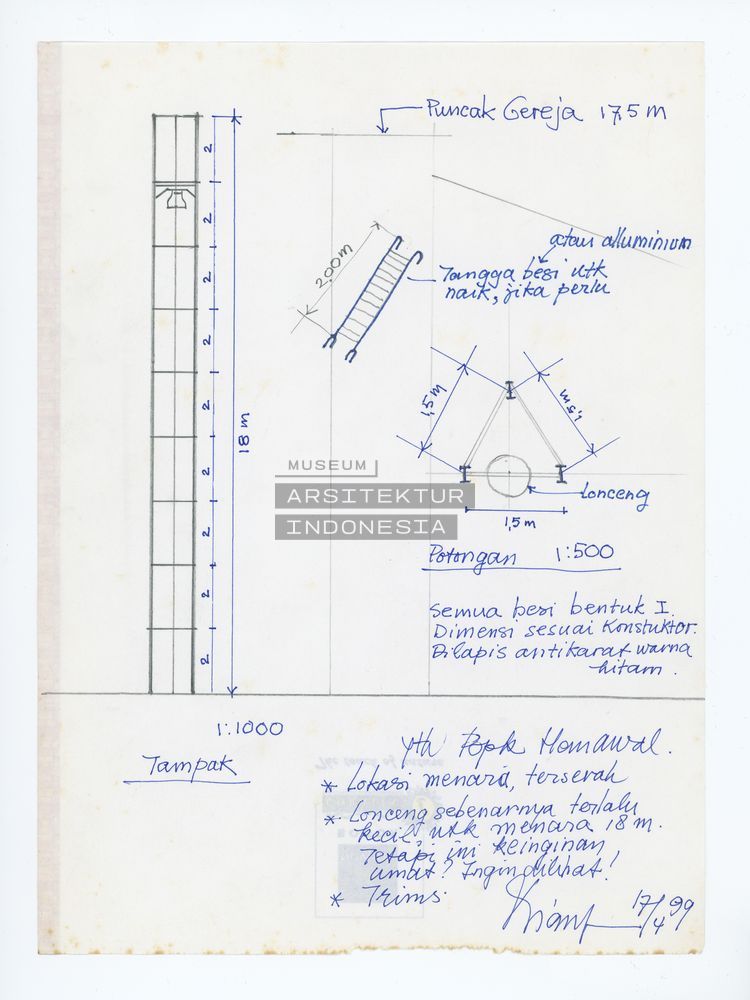 Puncak Gereja 17,5 m
atau alluminium
Tangga besi utk
naik, jika perlu
2,00 m
2
2
2
2
2
2
2
2
2
18 m
1,5 m
1,5 m
lonceng
1,5 m
MUSEUM
ARSITEKTUR
INDONESIA
Potongan 1:500
Semua besi bentuk I.
Dimensi sesuai Konstuktor.
Dilapis antikarat warna
hitam.
1:1000
Tampak
Yth Bpk Homawal.
* Lokasi menara, terserah
* Lonceng sebenarnya terlalu
kecil, utk menara 18 m.
Tetapi ini keinginan
umat? Ingin dilihat!
* Trims.
17/4 99